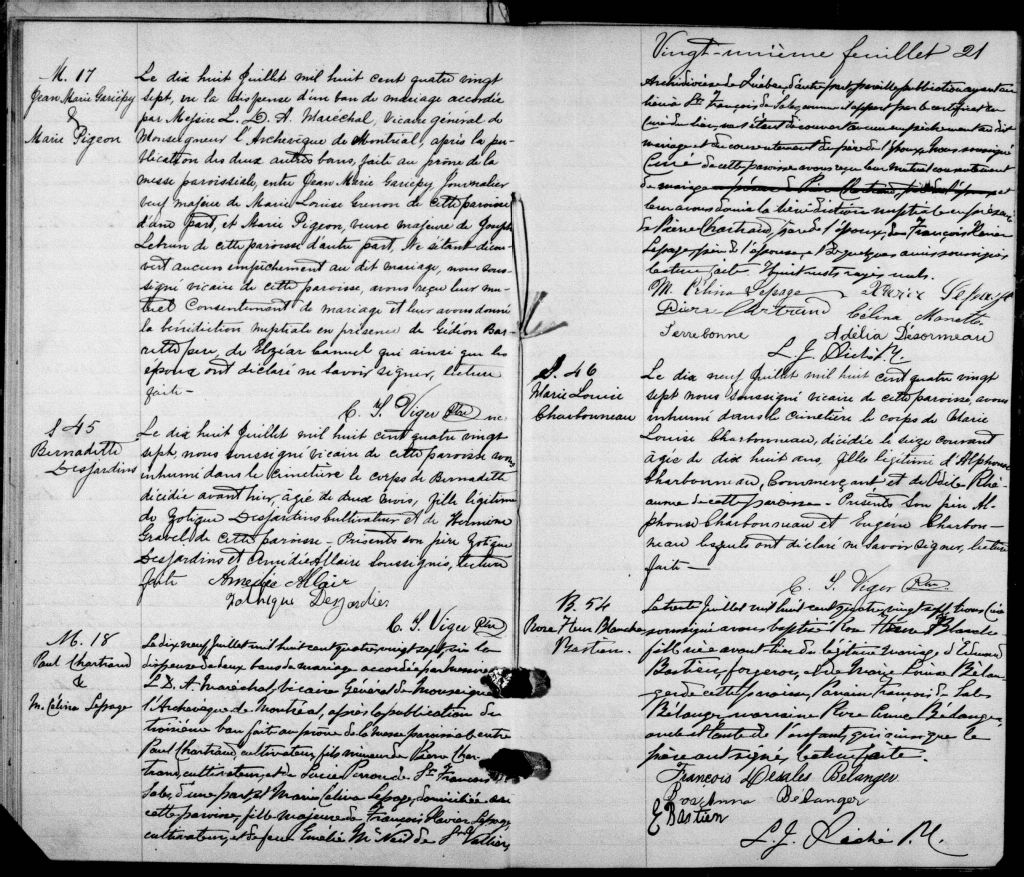 M. 17
Jean Marie Gariépy
&
Marie Pigeon
Le dix huit Juillet mil huit cent quatre vingt
sept, vu la dispense d'un ban de mariage accordée
par Messire L. D. A. Maréchal, Vicaire général de
Monseigneur l'Archevêque de Montréal, après la pu-
blication des deux autres bans, faite au prône de la
messe paroissiale, entre Jean Marie Gariépy, Journalier
veuf majeur de Marie Louise de cette paroisse
d'une part, et Marie Pigeon, veuve majeure de Joseph
Lebrun de cette paroisse d'autre part, Ne s'étant décou-
vert aucun empêchement au dit mariage, nous sous-
signé vicaire de cette paroisse, avons reçu leur mu-
tuel Consentement de mariage et leur avons donné
la bénédiction nuptiale en présence de Gédéon Bas-
père, de Elzéar qui ainsi que les
époux ont déclaré ne savoir signer, lecture
faite -
C. S. Viger Ptre
S 45
Bernadette
Desjardins
Le dix huit Juillet mil huit cent quatre vingt
sept, nous soussigné vicaire de cette paroisse avons
inhumé dans le Cimetière le corps de Bernadette
décédée avant hier, âgée de deux mois, fille légitime
de Zotique Desjardins Cultivateur et de Hermine
Gravel de cette paroisse - Présents son père Zotique
Desjardins et Amédée Allaire soussignés, lecture
faite
Amedée Allair
Desjardins
C. S. Viger Ptre
M. 18
Paul Chartrand
&
M. Célina Lepage
Le dix neuf Juillet mil huit cent quatre vingt sept, vu la
dispense de deux bans de mariage accordée par Messire
L. D. A. Maréchal, Vicaire Général de Monseigneur
l'Archevêque de Montréal, après la publication du
troisième ban fait au prône de la messe paroissiale entre
Paul Chartrand, cultivateur, fils mineur de Pierre Char-
trand, cultivateur, et de Lucie de St François de
Sales, d'une part, et Marie Célina Lepage, domiciliée en
cette paroisse, fille majeure de François Xavier Lepage,
cultivateur, et de feue Emélie de St Vallier,
Vingt-unième feuillet 21
Archidiocèse de Québec, d'autre part, pareille publication ayant eu
lieu à St François de Sales, comme il appert par le certificat du
Curé du lieu, ne s'étant découvert aucun empêchement au dit
mariage et du consentement du père de l'époux, Nous soussigné
Curé de cette paroisse avons reçu leur mutuel consentement
de mariage et
leur avons donné la bénédiction nuptiale en présence
de Pierre Chartrand, père de l'époux, de François Xavier
Lepage père de l'épouse, & de quelques amis soussignés,
lecture faite. Huit mots rayés nuls.
M. Célina Lepage Xavier Lepage
Pierre Chartrand Célina
Terrebonne Adélia Désormeau
L. J. Piché
S. 46
Marie Louise
Charbonneau
Le dix neuf Juillet mil huit cent quatre vingt
sept nous soussigné vicaire de cette paroisse, avons
inhumé dans le cimetière le corps de Marie
Louise Charbonneau, décédée le seize courant
âgée de dix huit ans, fille légitime d'Alphonse
Charbonneau, Commerçant et de Odile Rhé-
aume de cette paroisse - Présents son père Al-
phonse Charbonneau et Eugène Charbon-
neau lesquels ont déclaré ne savoir signer, lecture
faite -
C. S. Viger Ptre
B. 54
Rose Fleur Blanche
Bastien
Le trente Juillet mil huit cent quatre vingt sept Nous Curé
soussigné avons baptisé Rose Fleur Blanche
fille née avant hier du légitime mariage d'Edouard
Bastien, forgeron, et de Marie Louise Bélan-
ger de cette paroisse, Parrain François de Sales
Bélanger marraine Rose Anna Bélanger
oncle et tante de l'enfant, qui ainsi que le
père ont signé, lecture faite.
François Desales Belanger
Rose Anna Bélanger
E Bastien
L. J. Piché